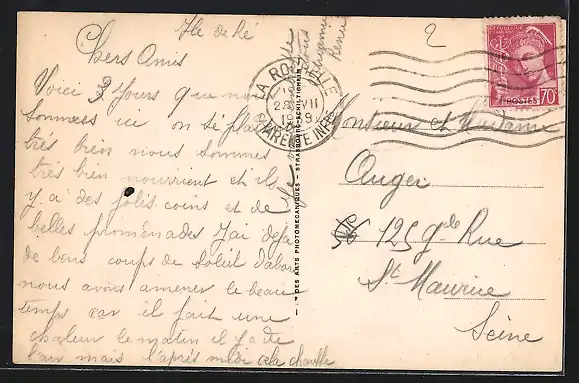 Ile de Ré
Chers Amis
Voici 3 Jours que nous
sommes ici on se plait
très bien nous sommes
très bien nourrient et ils
y a des jolis coins et de
belles promenades J'ai deja
de bons coups de Soleil d'abord
nous avons amener le beau
temps car il fait une
chaleur le matin il y a de
l'air mais l'après midi cela chauffe
LA ROCHELLE
22 VII
CHARENTE INFRE
2
POSTES 70c
— DES ARTS PHOTOMECANIQUES - STRASBOURG-SCHILTIGHEIM —
Monsieur et Madame
Auger
N° 125 gde Rue
St Maurice
Seine